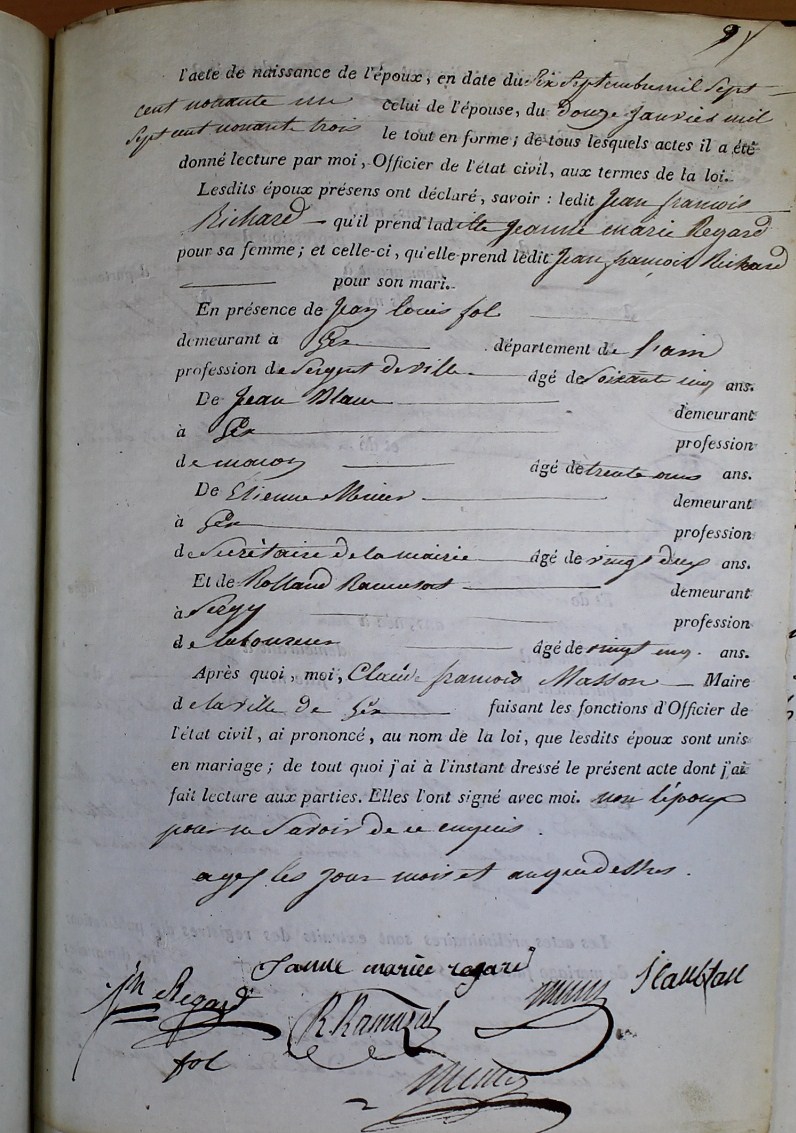 l'acte de naissance de l'époux, en date du Six Septembre mil Sept
cent nonante un celui de l'épouse, du Douze Janvier mil
Sept cent nonante trois le tout en forme; de tous lesquels actes il a été
donné lecture par moi, Officier de l'état civil, aux termes de la loi.
Lesdits époux présens ont déclaré, savoir : ledit Jean francois
Richard qu'il prend ladite Jeanne marie Regard
pour sa femme; et celle-ci, qu'elle prend ledit Jean françois Richard
pour son mari.
En présence de Jean louis fol
demeurant à Gex département de l'ain
profession de Sergent de ville âgé de Soixante cinq ans.
De Jean Blanc
demeurant
à Gex profession
de macon âgé de trente ans.
De Etienne
demeurant
à Gex profession
de Secrétaire de la mairie âgé de vingt deux ans.
Et de Rolland demeurant
à Sergy profession
de laboureur âgé de vingt cinq ans.
Après quoi, moi, Claude francois Masson Maire
de la ville de Gex faisant les fonctions d'Officier de
l'état civil, ai prononcé, au nom de la loi, que lesdits époux sont unis
en mariage; de tout quoi j'ai à l'instant dressé le présent acte dont j'ai
fait lecture aux parties. Elles l'ont signé avec moi. non l'époux
pour ne Savoir de ce enquis.
a gex les jour mois et an que dessus.
Janne mariee regard
Jh Regard R. Ramuzat
fol